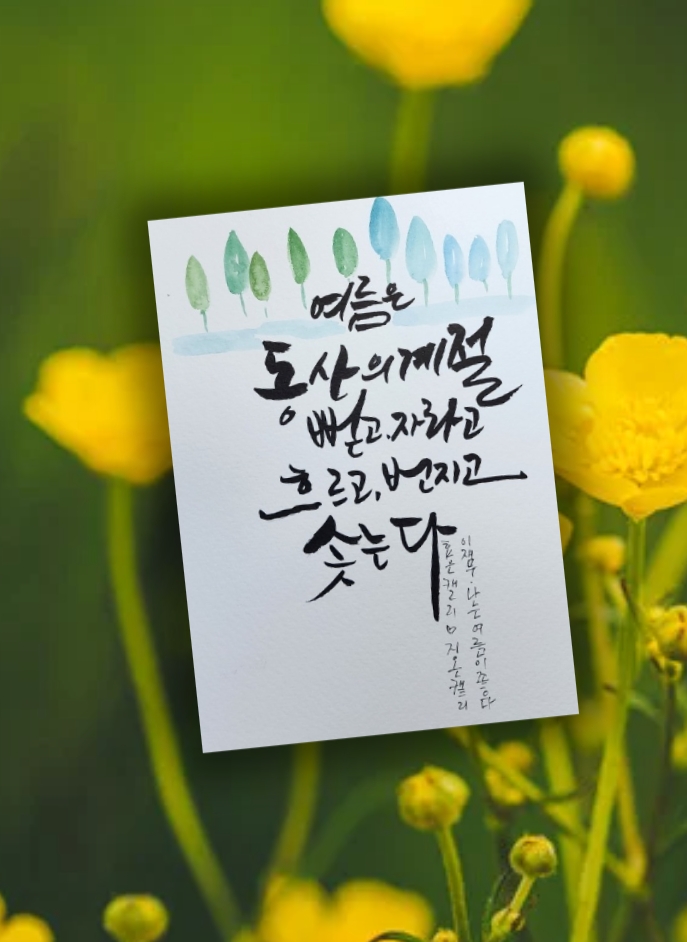 여름은
동산의계절
뻗고.자라고
흐르고,번지고
솟는다
이재무.나는여름이좋다
캘리
지온캘리